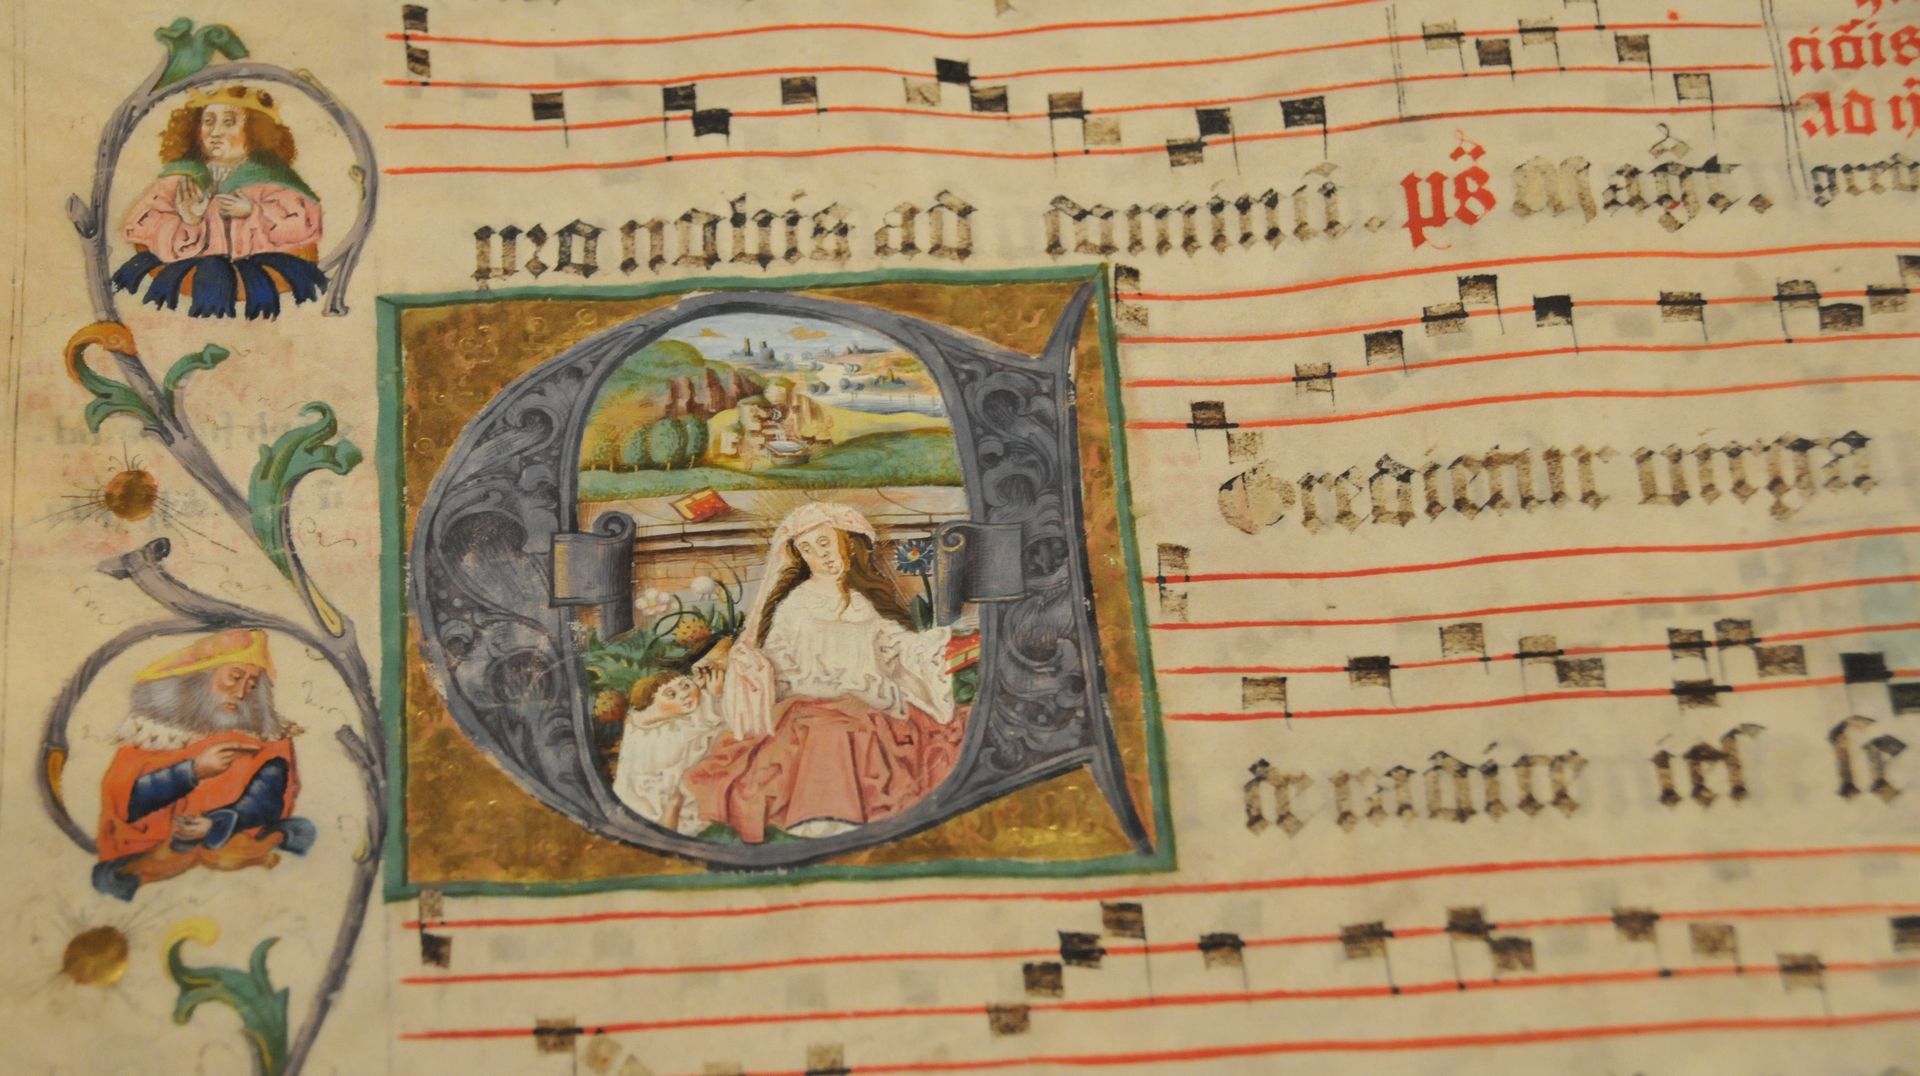 pro nobis ad dominū. ps̄ Mag̅t.
ciōis
Ad
Egredietur uirga
de radice ies se